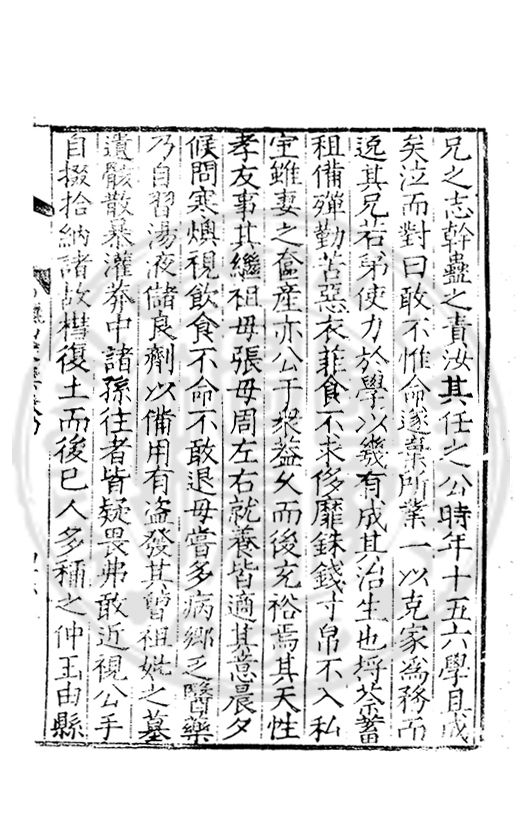 兄之志幹蠱之責汝其任之公時年十五六學且成
矣泣而對曰敢不惟命遂棄所業一以克家為務而
逸其兄若弟使力於學以幾有成其治生也捋荼蓄
租備殫勤苦惡衣菲食不求侈靡銖錢寸帛不入私
室雖妻之奩産亦公于衆葢乆而後充裕焉其天性
孝友事其繼祖母張母周左右就養皆適其意晨夕
候問寒燠視飲食不命不敢退母嘗多病鄉乏醫藥
乃自習湯液儲良劑以備用有盗發其曾祖妣之墓
遺骸散暴灌莽中諸孫往者皆疑畏弗敢近視公手
自掇拾納諸故槥復土而後已人多稱之仲玉由縣